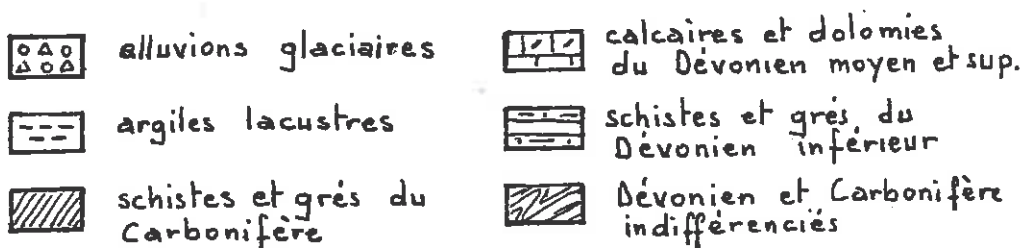 alluvions glaciaires
argiles lacustres
schistes et grés du
Carbonifère
calcaires et dolomies
du Dévonien moyen et sup.
schistes et grés du
Dévonien inférieur
Dévonien et Carbonifère
indifférenciés